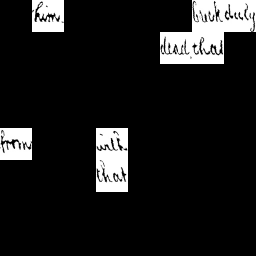 him. duly
dead, that
from with
that